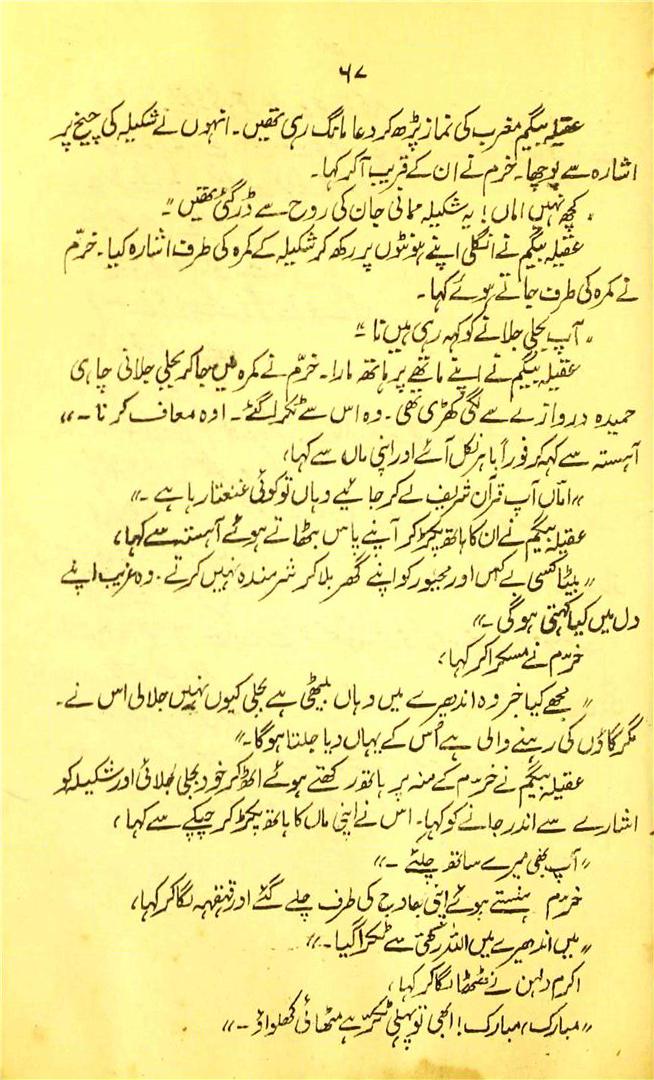 ۶۷
عقیلہ بیگم مغرب کی نماز پڑھ کر دعا مانگ رہی تھیں۔ انہوں نے شکیلہ کی چیخ پر
اشارہ سے پوچھا۔ خرم نے ان کے قریب آکر کہا۔
"کچھ نہیں اماں! یہ شکیلہ ممانی جان کی روح سے ڈر گئی تھیں"۔
عقیلہ بیگم نے انگلی اپنے ہونٹوں پر رکھ کر شکیلہ کے کمرہ کی طرف اشارہ کیا۔ خرّم
نے کمرہ کی طرف جاتے ہوئے کہا۔
"آپ بجلی جلانے کو کہہ رہی ہیں نا"۔
عقیلہ بیگم نے اپنے ماتھے پر ہاتھ مارا۔ خرّم نے کمرہ میں جا کر بجلی جلانی چاہی
حمیدہ دروازے سے لگی کھڑی تھی۔ وہ اس سے ٹکرا گئے۔ اوہ معاف کرنا ۔"
آہستہ سے کہہ کر فوراً باہر نکل آئے اور اپنی ماں سے کہا،
"امّاں آپ قرآن شریف لے کر جائیے وہاں تو کوئی رہا ہے ۔"
عقیلہ بیگم نے ان کا ہاتھ پکڑ کر اپنے پاس بٹھاتے ہوئے آہستہ سے کہا،
"بیٹا کسی بے کس اور مجبور کو اپنے گھر بلا کر شرمندہ نہیں کرتے۔ وہ غریب اپنے
دل میں کیا کہتی ہوگی۔"
خرّم نے مسکرا کر کہا،
"مجھے کیا خبر وہ اندھیرے میں وہاں بیٹھی ہے بجلی کیوں نہیں جلالی اس نے۔
مگر گاؤں کی رہنے والی ہے اُس کے یہاں دیا جلتا ہوگا۔"
عقیلہ بیگم نے خرّم کے منہ پر ہاتھ رکھتے ہوئے اٹھ کر خود بجلی جلائی اور شکیلہ کو
اشارے سے اندر جانے کو کہا۔ اس نے اپنی ماں کا ہاتھ پکڑ کر چپکے سے کہا،
"آپ بھی میرے ساتھ چلئے۔"
خرّم ہنستے ہوئے اپنی بھاوج کی طرف چلے گئے اور قہقہہ لگا کر کہا،
"میں اندھیرے میں اللہ رکھی سے ٹکرا گیا۔"
اکرم دلہن نے ٹھٹھا لگا کر کہا،
"مبارک، مبارک! ابھی تو پہلی ٹکر ہے مٹھائی کھلواؤ ۔"